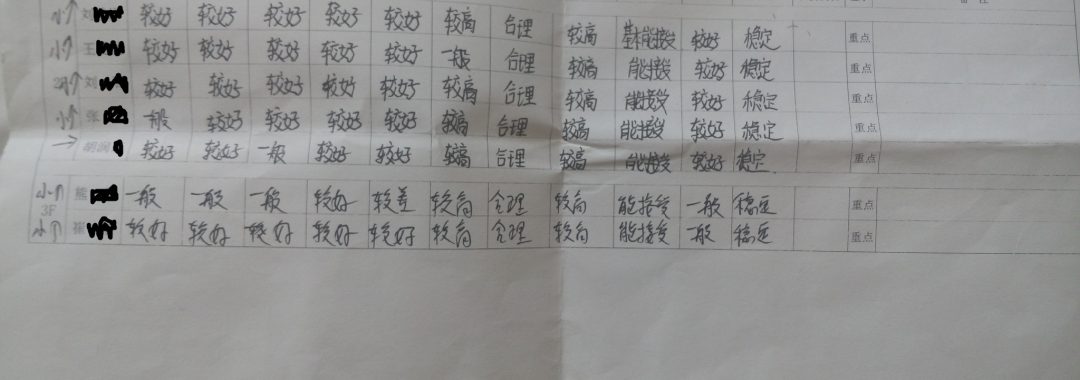 小↑ 刘 较好 较好 较好 较好 较好 较高 合理 较高 基本能接受 较好 稳定 重点
小↑ 王 较好 较好 较好 较好 较好 一般 合理 较高 能接受 较好 稳定 重点
2小↑ 刘 较好 较好 较好 较好 较好 较高 合理 较高 能接受 较好 稳定 重点
小↑ 张 一般 较好 较好 较好 较好 较高 合理 较高 能接受 较好 稳定 重点
→ 胡润 较好 较好 一般 较好 较好 较高 合理 较高 能接受 较好 稳定 重点
小↑ 熊 一般 一般 一般 较好 较差 较高 合理 较高 能接受 一般 稳定 重点
3F
小↑ 崔 较好 较好 较好 较好 较好 较高 合理 较高 能接受 一般 稳定 重点